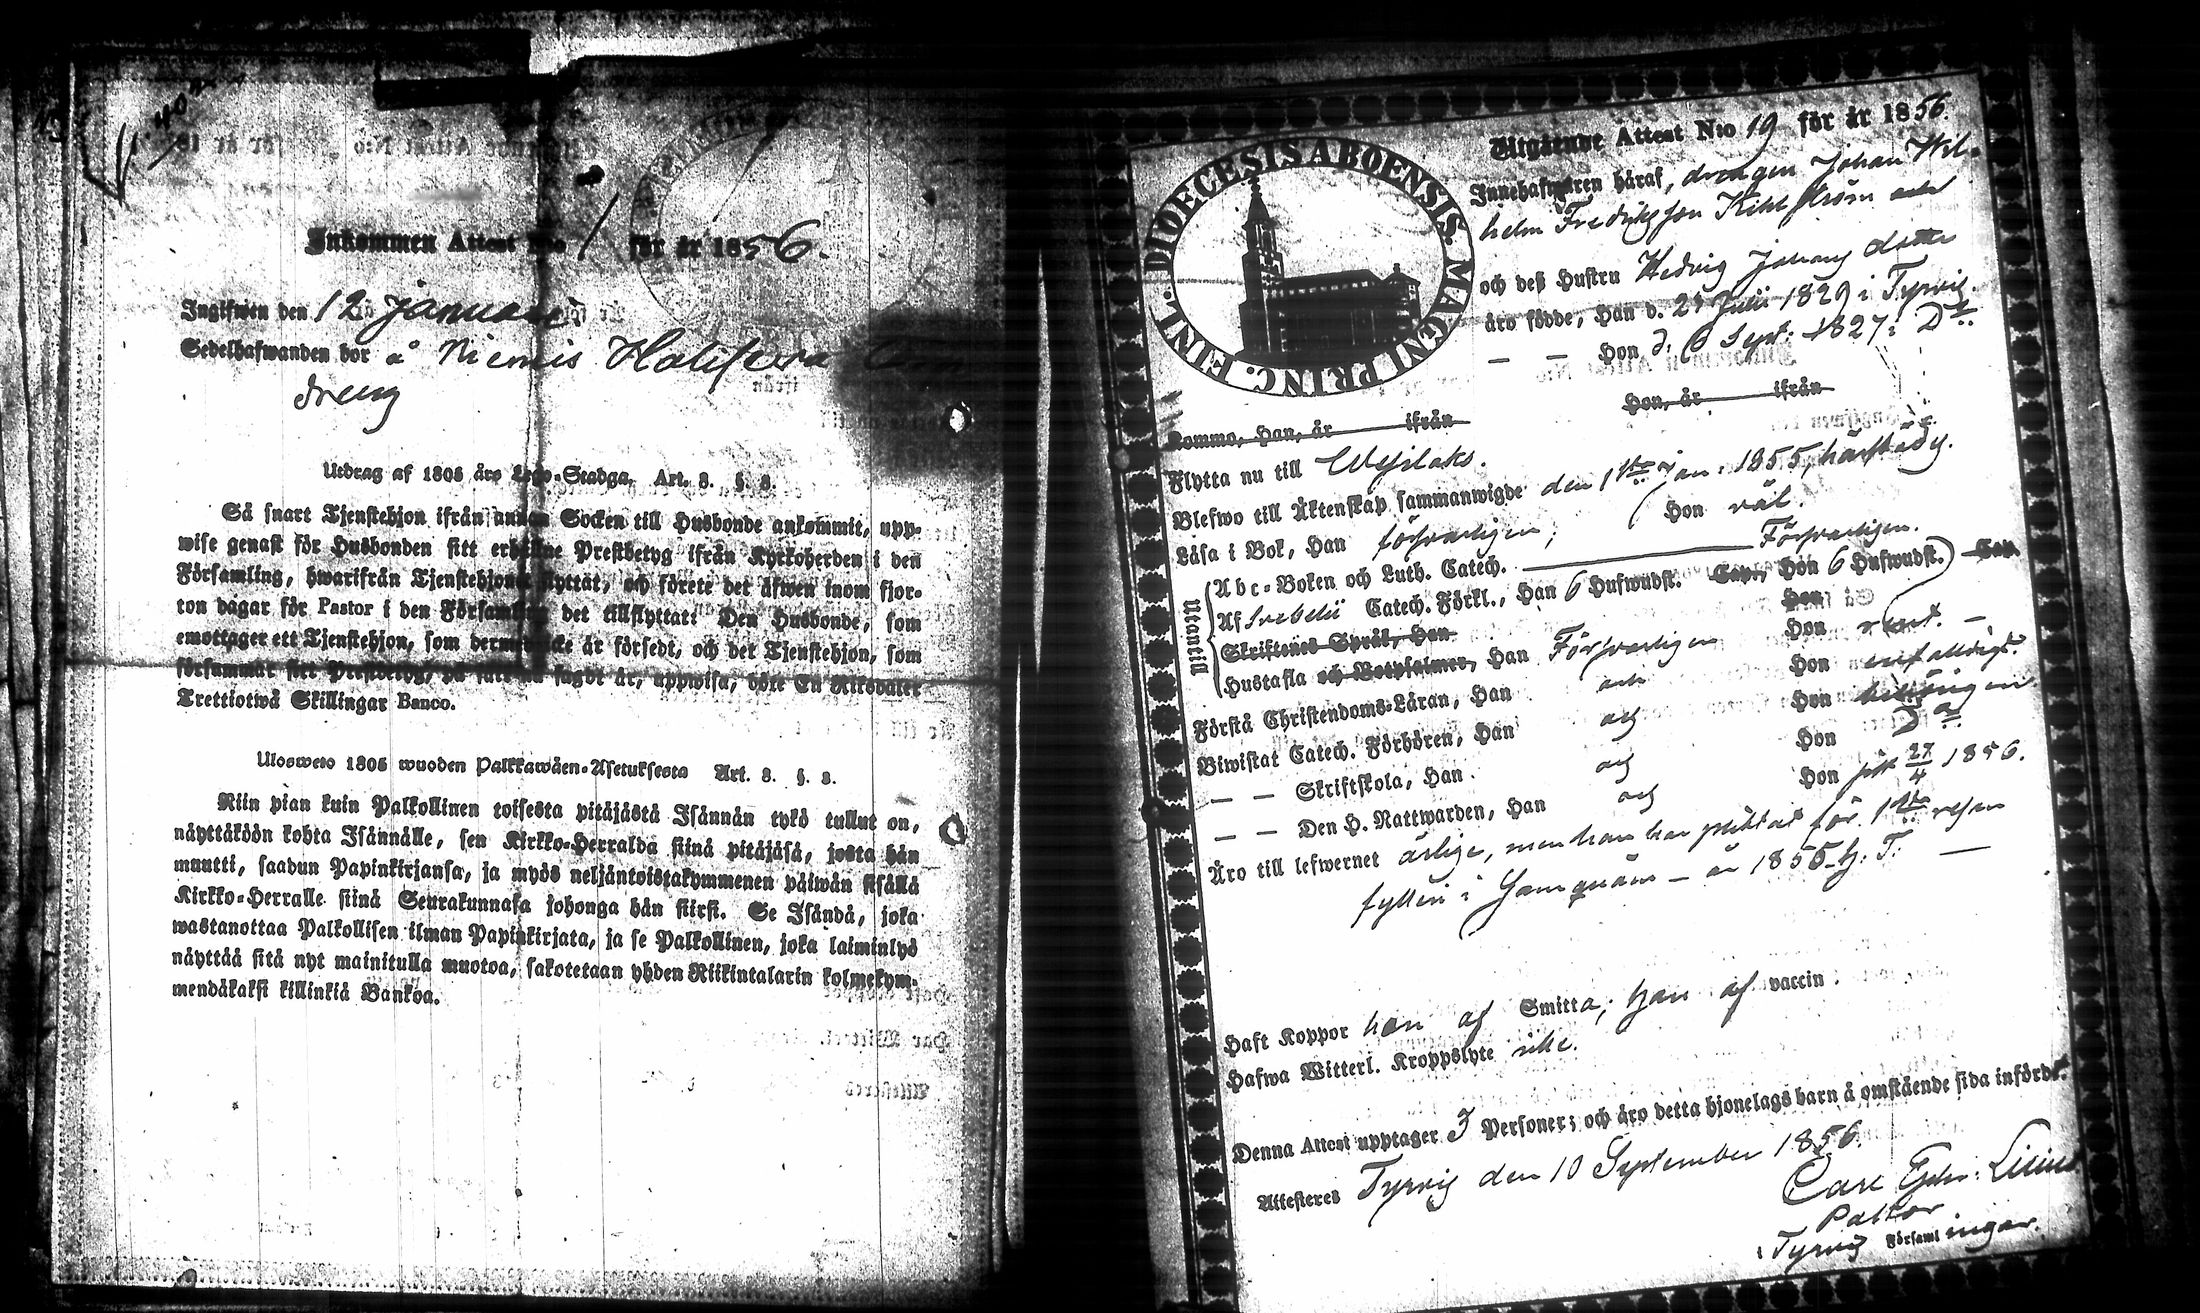 Inkommen Attest N:o 1 för år 1856.
Ingifwen den 12 Januari
Sedelhafwanden bor å Niemis
dreng
Utdrag af 1805 års Lego-Stadga. Art. 8. §. 8.
Så snart Tjenstehjon ifrån annan Socken till Husbonde ankommit, upp-
wise genast för Husbonden sitt erhållne Prestbetyg ifrån Kyrkoherden i den
Församling, hwarifrån Tjenstehjonet flyttat, och förete det äfwen inom fjor-
ton dagar för Pastor i den Församling det tillflyttat: Den Husbonde, som
emottager ett Tjenstehjon, som dermed icke är försedt, och det Tjenstehjon, som
försummar sitt Prestbetyg, på sätt nu sagdt är, uppwisa, böte En Riksdaler
Trettiotwå Skillingar Banco.
Ulosweto 1805 wuoden Palkkawäen-Asetuksesta Art. 8. §. 8.
Niin pian kuin Palkollinen toisesta pitäjästä Isännän tykö tullut on,
näyttäköön kohta Isännälle, sen Kirkko-Herralda siinä pitäjäsä, josta hän
muutti, saadun Papinkirjansa, ja myös neljäntoistakymmenen päiwän sisällä
Kirkko-Herralle siinä Seurakunnasa johonga hän siirsi. Se Isändä, joka
wastanottaa Palkollisen ilman Papinkirjata, ja se Palkollinen, joka laiminlyö
näyttää sitä nyt mainitulla muotoa, sakotetaan yhden Riikintalarin kolmekym-
mendäkaksi killinkiä Bankoa.
DIOECESIS ABOENSIS. MAGNI PRINC. FINL.
Utgående Attest N:o 19 för år 1856.
Innehafwaren häraf, drengen Johan Wil-
helm Fredriksson Kihlström
och deß Hustru Hedvig Johans dotter
äro födde, Han d. 24 Julii 1829 i Tyrvis.
— — Hon d. 6 Sept: 1827 i D:o
Hon, år ifrån
Kommo, Han, år ifrån
Flytta nu till Wesilaks.
Blefwo till Äktenskap sammanwigde den 1sta Jan: 1855, härstädes.
Läsa i Bok, Han försvarligen, Hon väl.
Utantill
Abc-Boken och Luth. Catech. Försvarligen.
Af Svebelii Catech. Förkl., Han 6 Hufwudst. Cap., Hon 6 Hufwudst. Cap.
Skriftenes Språk, Han Hon
Hustafla och Botpsalmer, Han Försvarligen Hon
Förstå Christendoms-Läran, Han Hon enfaldigt.
Biwistat Catech. Förhören, Han och Hon behörigen
— — Skriftskola, Han och Hon D:o
— — Den H. Nattwarden, Han och Hon sist 27/4 1856.
Äro till lefwernet ärlige, men han har pliktat för 1sta resan
fylleri i
Haft Koppor hon af Smitta, han af vaccin.
Hafwa Witterl. Kroppslyte icke.
Denna Attest upptager 3 Personer; och äro detta hjonelags barn å omstående sida införde.
Attesteras Tyrvis den 10 September 1856.
Carl Lilius
Pastor
i Tyrvis Församlingar.